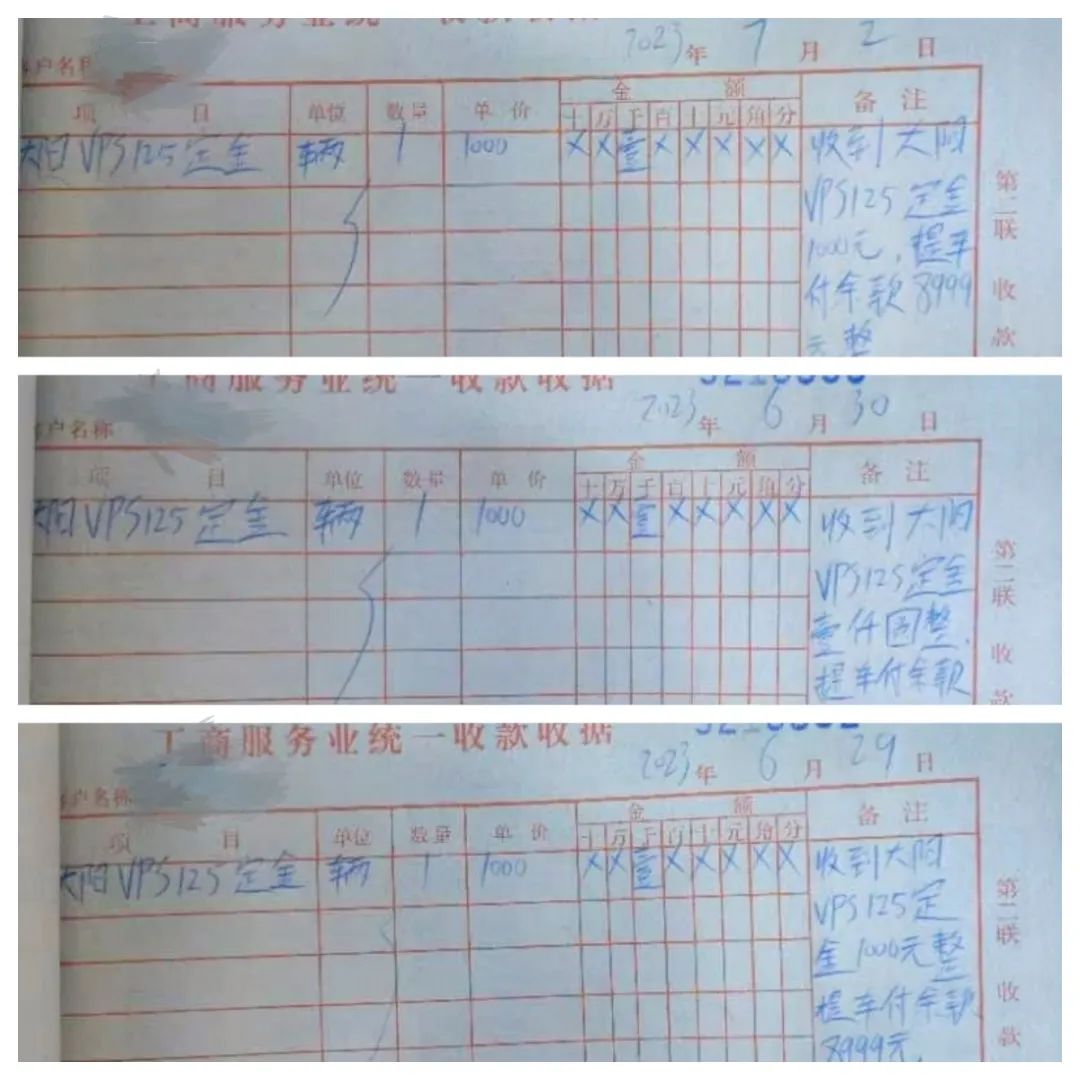 工商服务业统一收款收据
2023年7月2日
客户名称
项目 单位 数量 单价 金额 备注
十万千百十元角分
大阳VPS125定金 辆 1 1000 XX壹XXXXX 收到大阳
VPS125定金
1000元,提车
付余款8999
元整
第二联 收款
工商服务业统一收款收据
2023年6月30日
客户名称
项目 单位 数量 单价 金额 备注
十万千百十元角分
大阳VPS125定金 辆 1 1000 XX壹XXXXX 收到大阳
VPS125定金
壹仟圆整,
提车付余款
第二联 收款
工商服务业统一收款收据
2023年6月29日
客户名称
项目 单位 数量 单价 金额 备注
十万千百十元角分
大阳VPS125定金 辆 1 1000 XX壹XXXXX 收到大阳
VPS125定
金1000元整
提车付余款
8999元,
第二联 收款